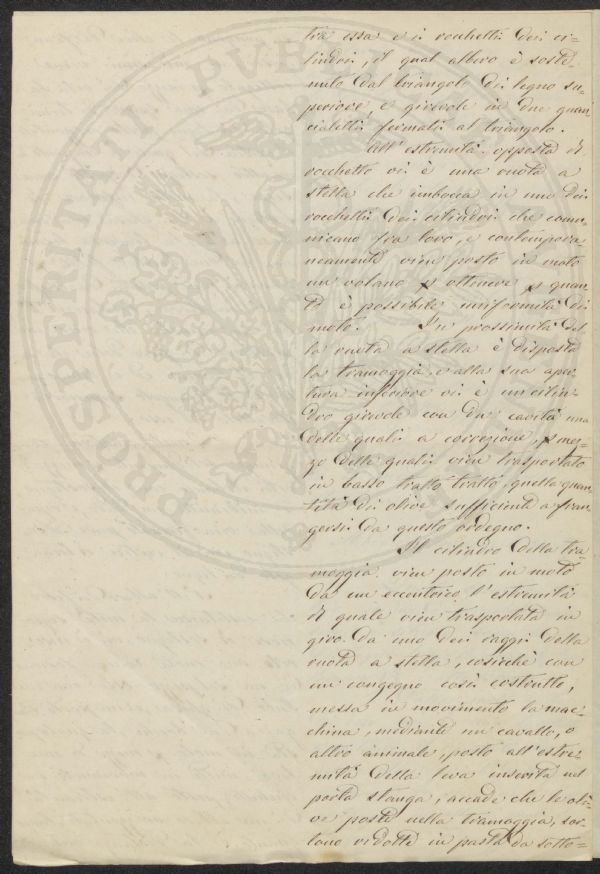 tra essa e i rocchetti dei ci-
lindri, il qual albero è soste-
nuto dal triangolo di legno su-
periore e girevole in due guan-
cialetti fermati al triangolo.
All'estremità opposta al
rocchetto vi è una ruota a
stella che imbocca in uno dei
rocchetti dei cilindri che comu-
nicano fra loro, e contempora-
neamente vien posto in moto
un volano p ottenere p quan-
to è possibile uniformità di
moto. In prossimità del-
la ruota a stella è disposta
la tramoggia, e alla sua aper-
tura inferiore vi è un cilin-
dro girevole con due cavità una
delle quali a correzione, p mez-
zo delle quali vien trasportato
in basso tratto tratto, quella quan-
tità di olive sufficiente a fran-
gersi da questo ordegno.
Il cilindro della tra-
moggia vien posto in moto
da un eccentrico, l'estremità
del quale vien trasportata in
giro da uno dei raggi della
ruota a stella, cosicchè con
un congegno così costrutto,
messa in movimento la mac-
china, mediante un cavallo, o
altro animale, posto all'estre-
mità della leva inserita nel
porta stanga, accade che le oli-
ve poste nella tramoggia, sor-
tono ridotte in pasta da sotto=
PROSPERITATI PVBLI